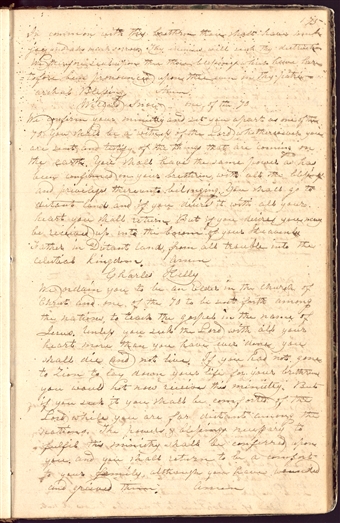 in connexion with thy brethren thou shalt have
fore pronounced upon thee even on thy
archal Blessing Amen
one of the 70
We confirm your ministry and set you apart as one of the
70. You shall be a witness of the Lord whithersoever you
are sent, and testify of the things that are coming on
the earth. You shall have the same power as has
been confirmed on your brethren with all the
and privileges thereunto belonging. You shall go to
distant land and if you desire it with all your
heart you shall return. But if you desire you may
be received up into the bosom of your heavenly
Father in Distant land, from all trouble into the
celestial kingdom. Amen
Charles Kelly
We ordain you to be an Elder in the church of
Christ and one of the 70 to be sent forth among
the nations, to teach the gospel in the name of
Jesus. Unless you seek the Lord with all your
heart more than you have ever done you
shall die and not live. If you had not gone
to Zion to lay down your life for your brethren
you would not now receive this ministry. But
if you seek it you shall be comforted of the
Lord while you are far distant among the
nations. The powers & blessings necessary to
fulfil this ministry shall be conferred upon
you and you shall return to be a comfort
to your family, although you have
and grieved them. Amen